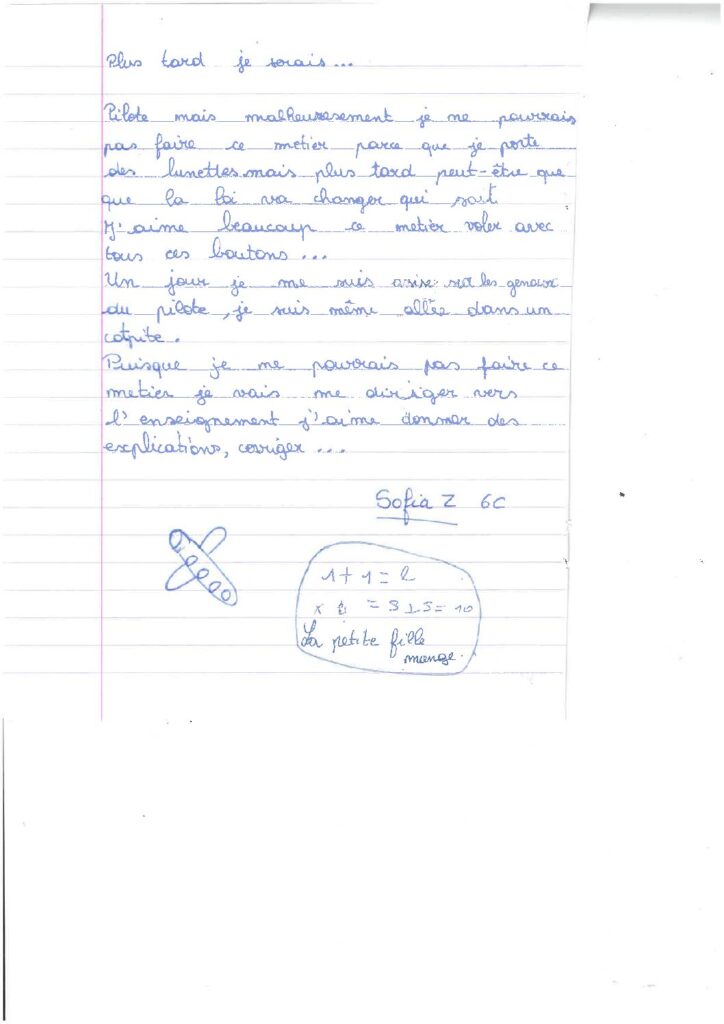 Plus tard je serais...
Pilote mais malheuresement je ne pourrais
pas faire ce metier parce que je porte
des lunettes.mais plus tard peut-être que
que la loi va changer qui sait
J'aime beaucoup ce metier voler avec
tous ces boutons...
Un jour je me suis assise sur les genoux
du pilote, je suis même allée dans un
cotpite.
Puisque je ne pourrais pas faire ce
metier je vais me diriger vers
l'enseignement j'aime donner des
explications, corriger...
Sofia Z 6C
1+1=2
= 10
La petite fille
mange.